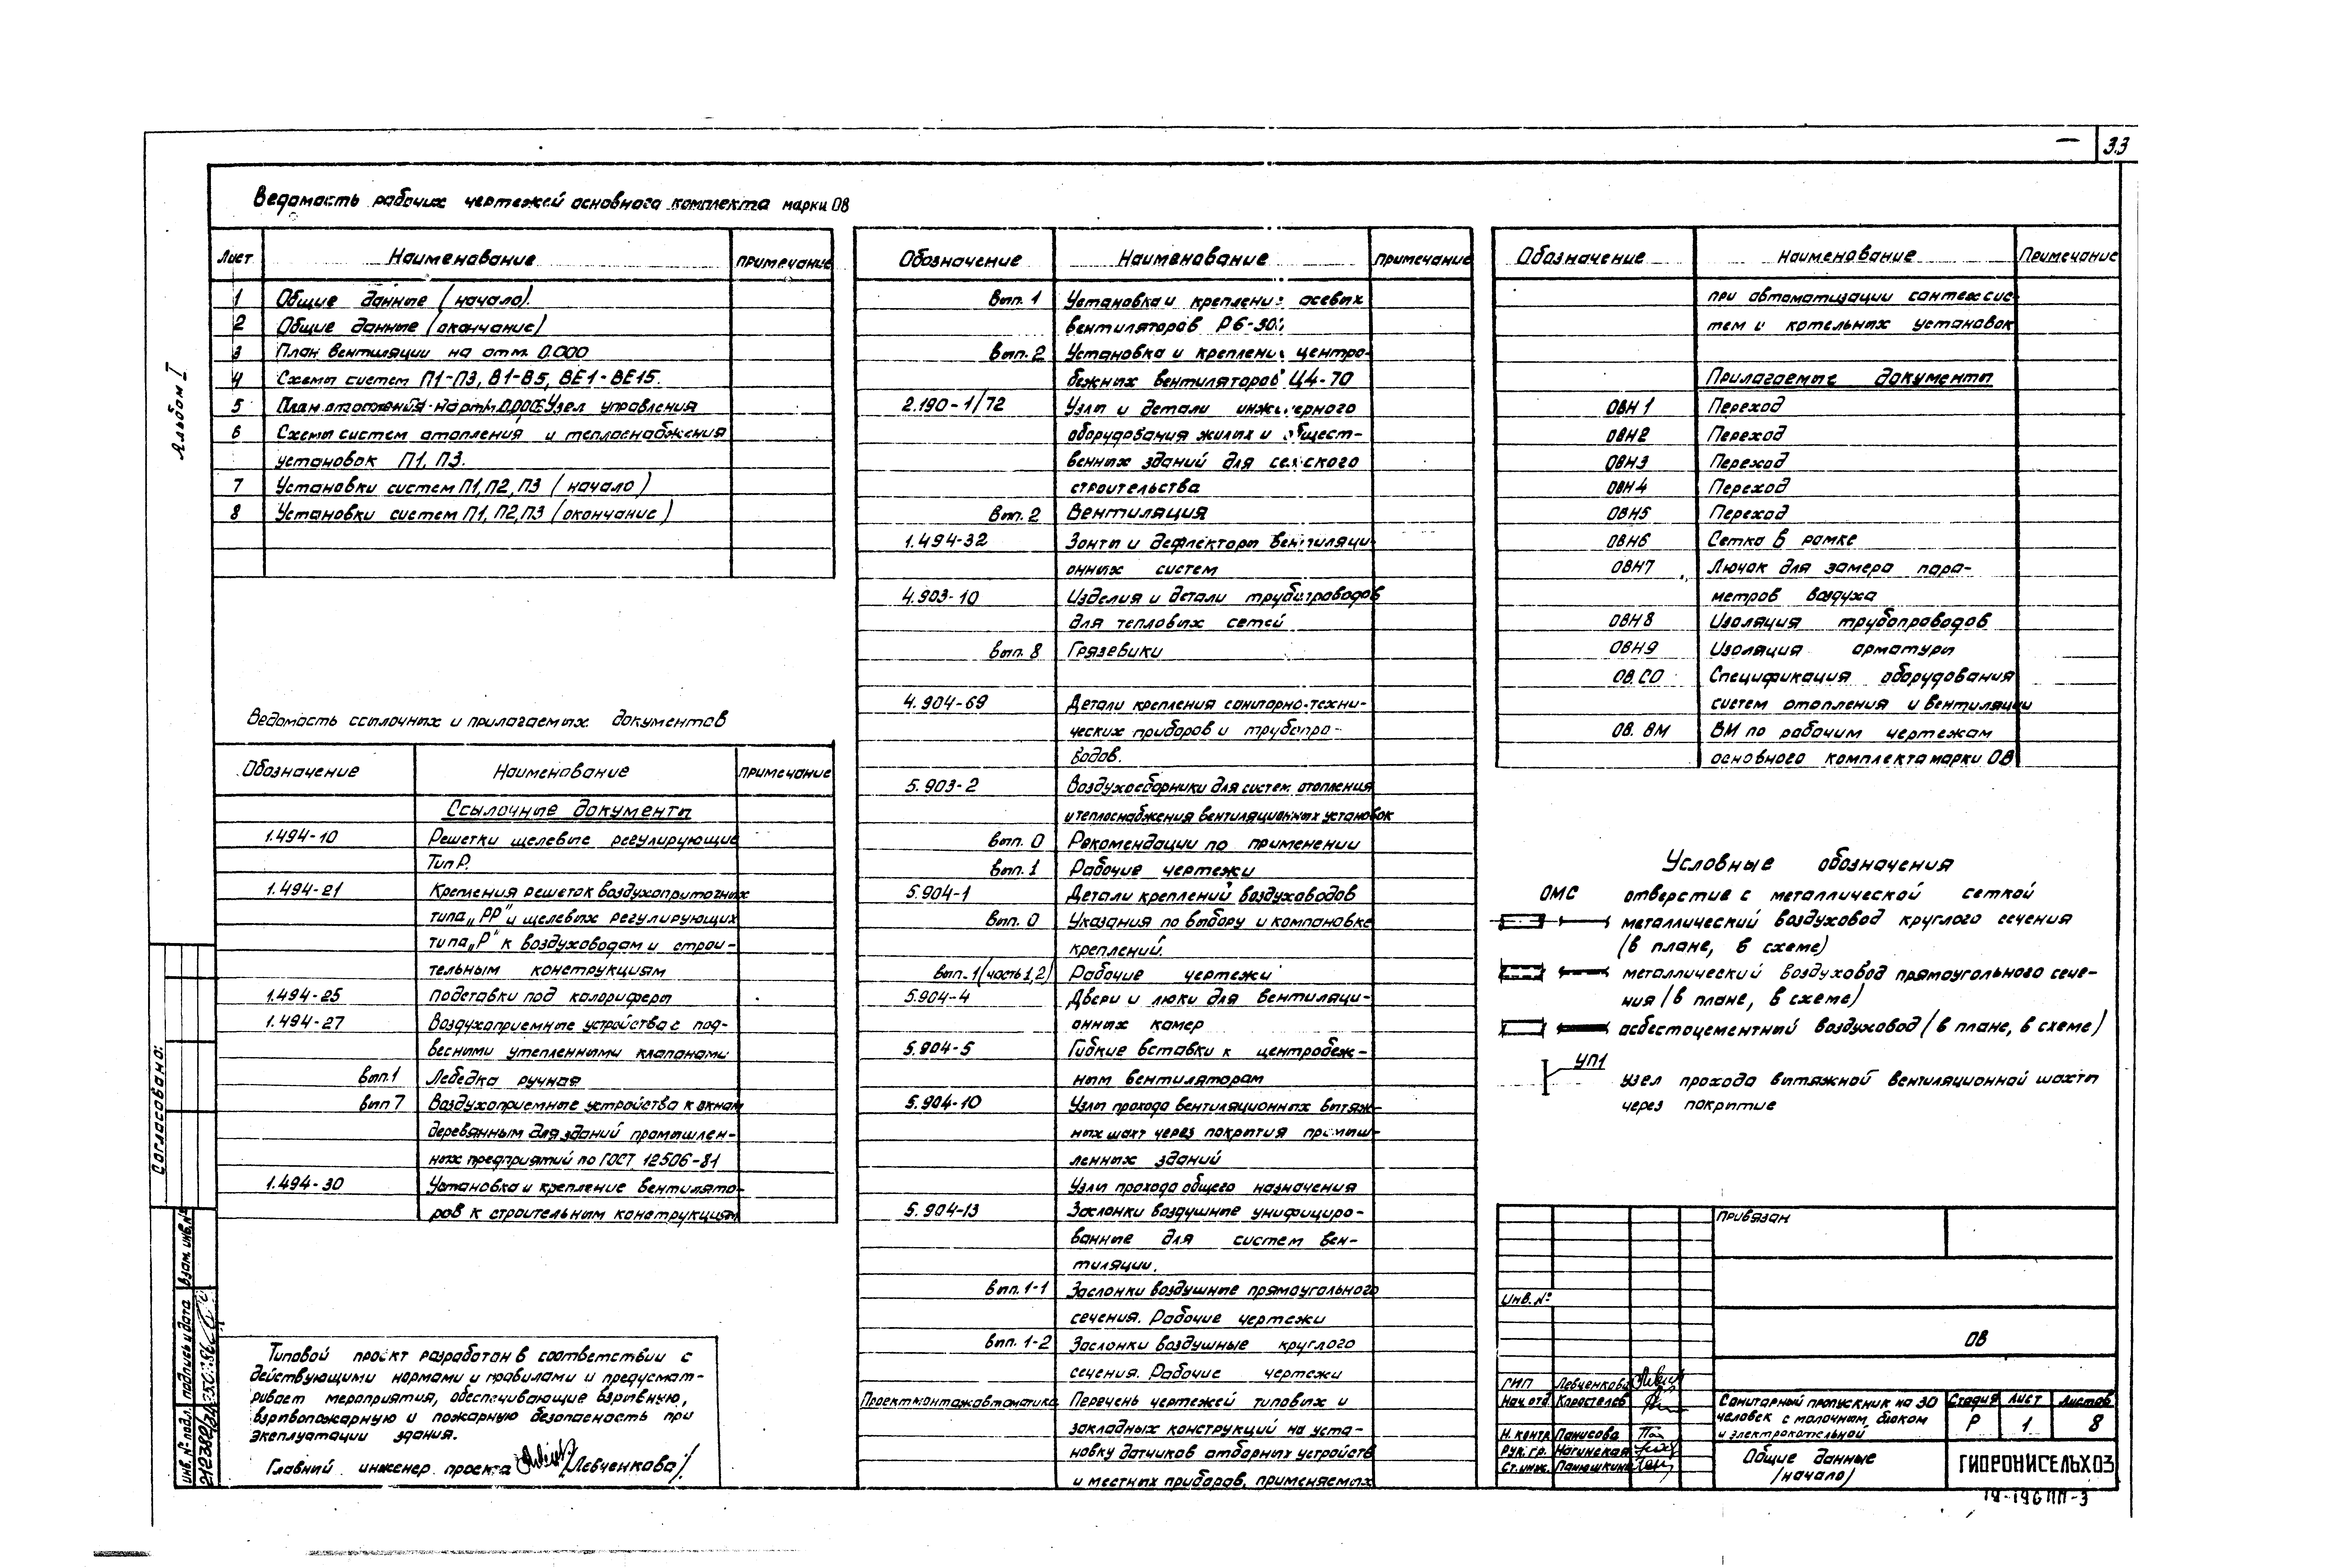 33
Альбом I
Ведомость рабочих чертежей основного комплекта марки ОВ
Лист Наименование примечание
1 Общие данные (начало).
2 Общие данные (окончание)
3 План вентиляции на отм. 0.000
4 Схемы систем П1-П3, В1-В5, ВЕ1-ВЕ15.
5 План отопления на отм. 0.000. Узел управления
6 Схемы систем отопления и теплоснабжения
установок П1, П3.
7 Установки систем П1, П2, П3 (начало)
8 Установки систем П1, П2, П3 (окончание)
Ведомость ссылочных и прилагаемых документов
Обозначение Наименование примечание
Ссылочные документы
1.494-10 Решетки щелевые регулирующие
Тип Р.
1.494-21 Крепления решеток воздухоприточных
типа „РР" и щелевых регулирующих
типа „Р" к воздуховодам и строи-
тельным конструкциям
1.494-25 Подставки под калориферы
1.494-27 Воздухоприемные устройства с под-
весными утепленными клапанами
вып.1 Лебедка ручная
вып 7 Воздухоприемные устройства к окнам
деревянным для зданий промышлен-
ных предприятий по ГОСТ 12506-81
1.494-30 Установка и крепление вентилято-
ров к строительным конструкциям
Типовой проект разработан в соответствии с
действующими нормами и правилами и предусмат-
ривает мероприятия, обеспечивающие взрывную,
взрывопожарную и пожарную безопасность при
эксплуатации здания.
Главный инженер проекта /Левченкова/
Обозначение Наименование примечание
Вып. 1 Установка и крепление осевых
вентиляторов Р6-30;
Вып. 2 Установка и крепление центро-
бежных вентиляторов Ц4-70
2.190-1/72 Узлы и детали инженерного
оборудования жилых и общест-
венных зданий для сельского
строительства
Вып. 2 Вентиляция
1.494-32 Зонты и дефлекторы вентиляци-
онных систем
4.903-10 Изделия и детали трубопроводов
для тепловых сетей
Вып. 8 Грязевики
4.904-69 Детали крепления санитарно-техни-
ческих приборов и трубопро-
водов.
5.903-2 Воздухосборники для систем отопления
и теплоснабжения вентиляционных установок
вып. 0 Рекомендации по применении
вып. 1 Рабочие чертежи
5.904-1 Детали креплений воздуховодов
Вып. 0 Указания по выбору и компановке
креплений.
Вып.1(часть 1,2) Рабочие чертежи
5.904-4 Двери и люки для вентиляци-
онных камер
5.904-5 Гибкие вставки к центробеж-
ным вентиляторам
5.904-10 Узлы прохода вентиляционных вытяж-
ных шахт через покрытия промыш-
ленных зданий
Узлы прохода общего назначения
5.904-13 Заслонки воздушные унифициро-
ванные для систем вен-
тиляции.
вып. 1-1 Заслонки воздушные прямоугольного
сечения. Рабочие чертежи
вып. 1-2 Заслонки воздушные круглого
сечения. Рабочие чертежи
Проектмонтажавтоматика Перечень чертежей типовых и
закладных конструкций на уста-
новку датчиков отборных устройств
и местных приборов, применяемых
Обозначение Наименование Примечание
при автоматизации сантехсис-
тем и котельных установок
Прилагаемые документы
ОВН1 Переход
ОВН2 Переход
ОВН3 Переход
ОВН4 Переход
ОВН5 Переход
ОВН6 Сетка в рамке
ОВН7 Лючок для замера пара-
метров воздуха
ОВН8 Изоляция трубопроводов
ОВН9 Изоляция арматуры
ОВ.СО Спецификация оборудования
систем отопления и вентиляции
ОВ. ВМ ВМ по рабочим чертежам
основного комплекта марки ОВ
Условные обозначения
ОМС отверстие с металлической сеткой
металлический воздуховод круглого сечения
(в плане, в схеме)
металлический воздуховод прямоугольного сече-
ния (в плане, в схеме)
асбестоцементный воздуховод (в плане, в схеме)
УП1
узел прохода вытяжной вентиляционной шахты
через покрытие
Привязан
Инв. №
ОВ
ГИП Левченкова
Нач. отд. Коростелев
Н. контр. Панисова
Рук. гр. Нагинская
Ст. инж. Панюшкина
Санитарный пропускник на 30
человек с молочным блоком
и электрокотельной
Стадия Лист Листов
Р 1 8
Общие данные
(начало)
ГИПРОНИСЕЛЬХОЗ
Согласовано:
Инв. № подл. подпись и дата Взам. инв. №